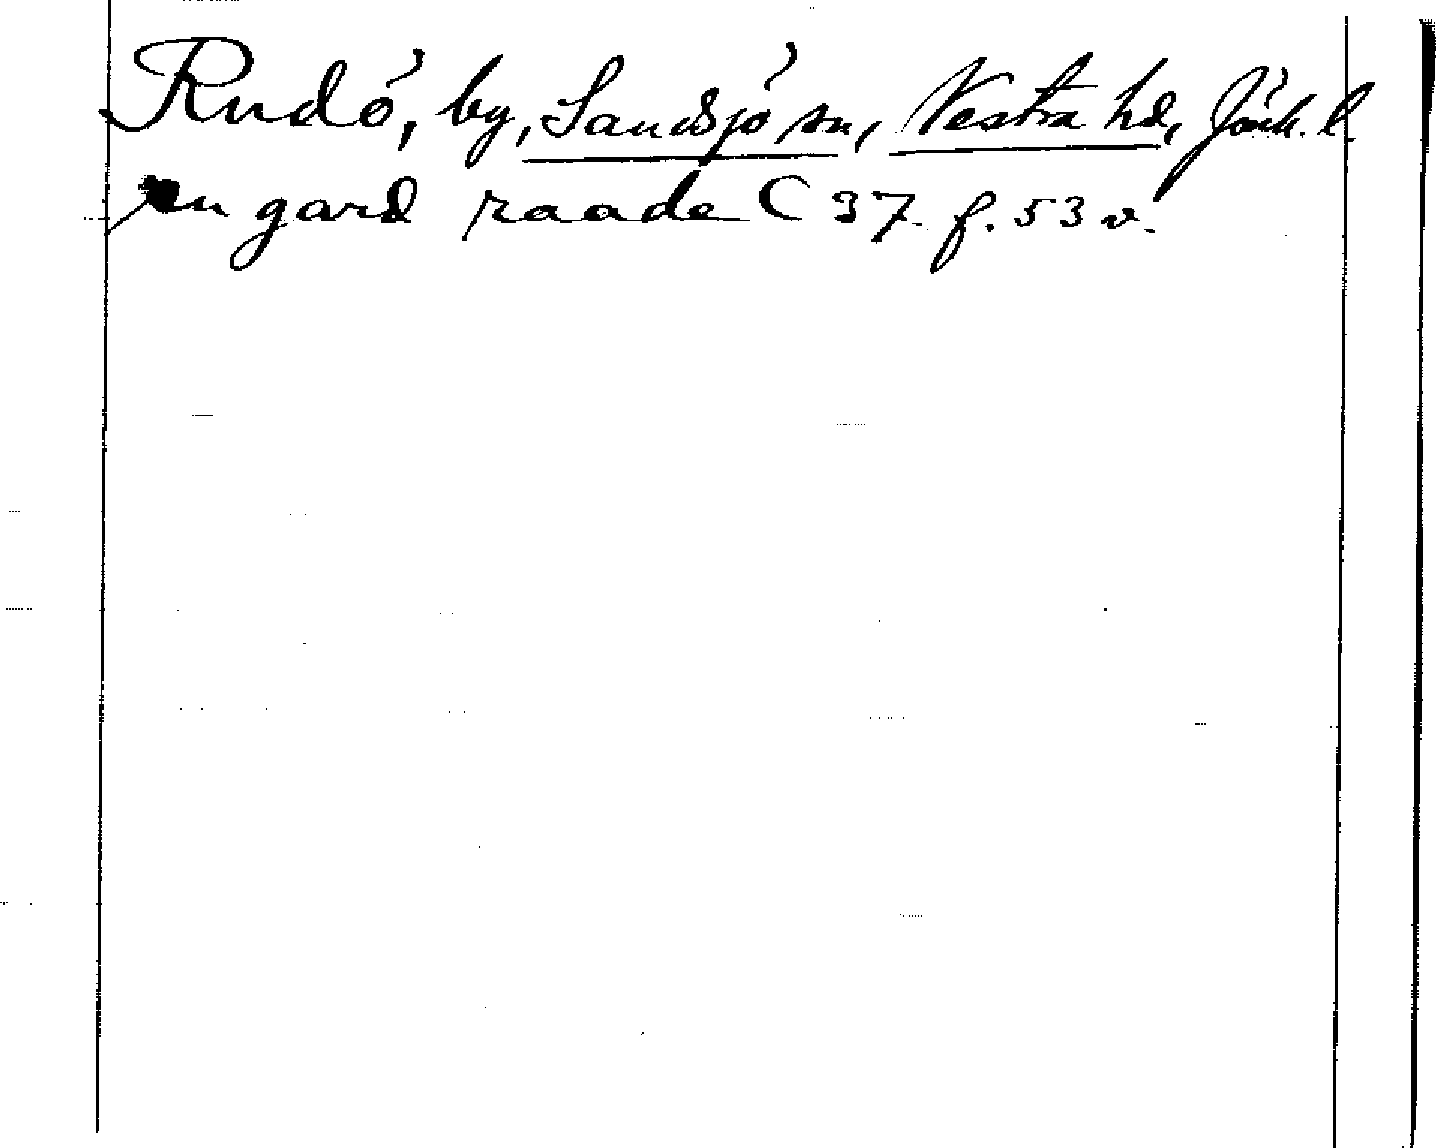 Rudö, by, Sandsjö sn, Vestra hd, Jönk. l.
en gard raade C 37 f. 53 v.